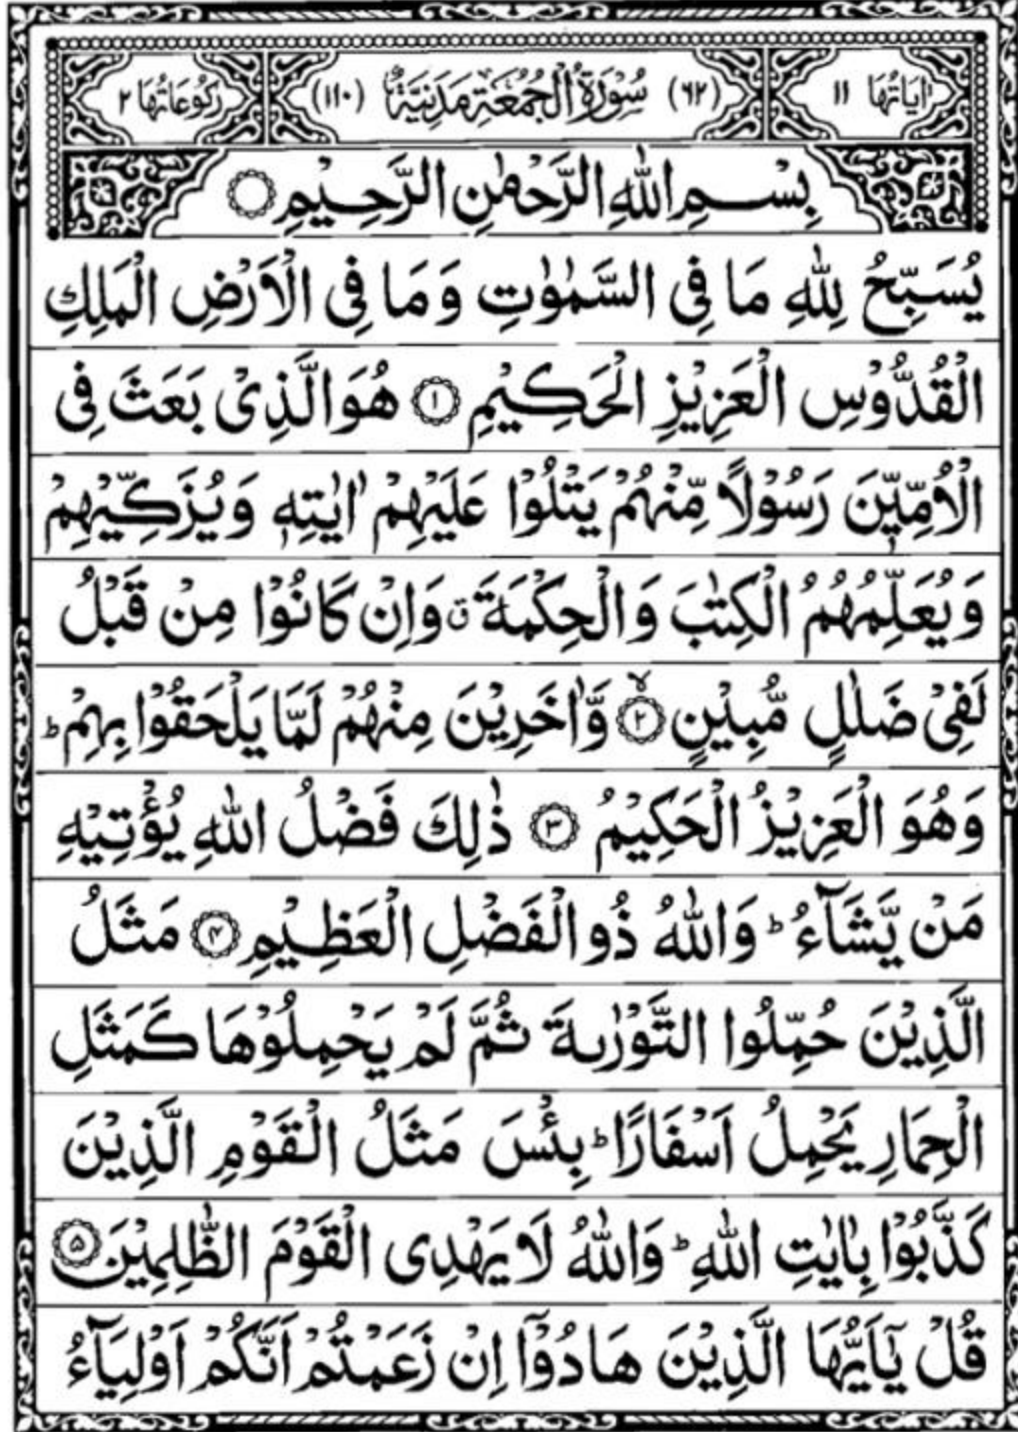 اٰيَاتُهَا ١١ (٦٢) سُوْرَةُ الْجُمُعَةِ مَدَنِيَّةٌ (١١٠) رُكُوْعَاتُهَا ٢
بِسْمِ اللّٰهِ الرَّحْمٰنِ الرَّحِيْمِ
يُسَبِّحُ لِلّٰهِ مَا فِى السَّمٰوٰتِ وَمَا فِى الْاَرْضِ الْمَلِكِ
الْقُدُّوْسِ الْعَزِيْزِ الْحَكِيْمِ ۝١ هُوَ الَّذِىْ بَعَثَ فِى
الْاُمِّيّٖنَ رَسُوْلًا مِّنْهُمْ يَتْلُوْا عَلَيْهِمْ اٰيٰتِهٖ وَيُزَكِّيْهِمْ
وَيُعَلِّمُهُمُ الْكِتٰبَ وَالْحِكْمَةَ ق وَاِنْ كَانُوْا مِنْ قَبْلُ
لَفِىْ ضَلٰلٍ مُّبِيْنٍ ۝٢ۙ وَّاٰخَرِيْنَ مِنْهُمْ لَمَّا يَلْحَقُوْا بِهِمْ ؕ
وَهُوَ الْعَزِيْزُ الْحَكِيْمُ ۝٣ ذٰلِكَ فَضْلُ اللّٰهِ يُؤْتِيْهِ
مَنْ يَّشَآءُ ؕ وَاللّٰهُ ذُو الْفَضْلِ الْعَظِيْمِ ۝۴ مَثَلُ
الَّذِيْنَ حُمِّلُوا التَّوْرٰىةَ ثُمَّ لَمْ يَحْمِلُوْهَا كَمَثَلِ
الْحِمَارِ يَحْمِلُ اَسْفَارًا ؕ بِئْسَ مَثَلُ الْقَوْمِ الَّذِيْنَ
كَذَّبُوْا بِاٰيٰتِ اللّٰهِ ؕ وَاللّٰهُ لَا يَهْدِى الْقَوْمَ الظّٰلِمِيْنَ ۝۵
قُلْ يٰۤاَيُّهَا الَّذِيْنَ هَادُوْۤا اِنْ زَعَمْتُمْ اَنَّكُمْ اَوْلِيَآءُ